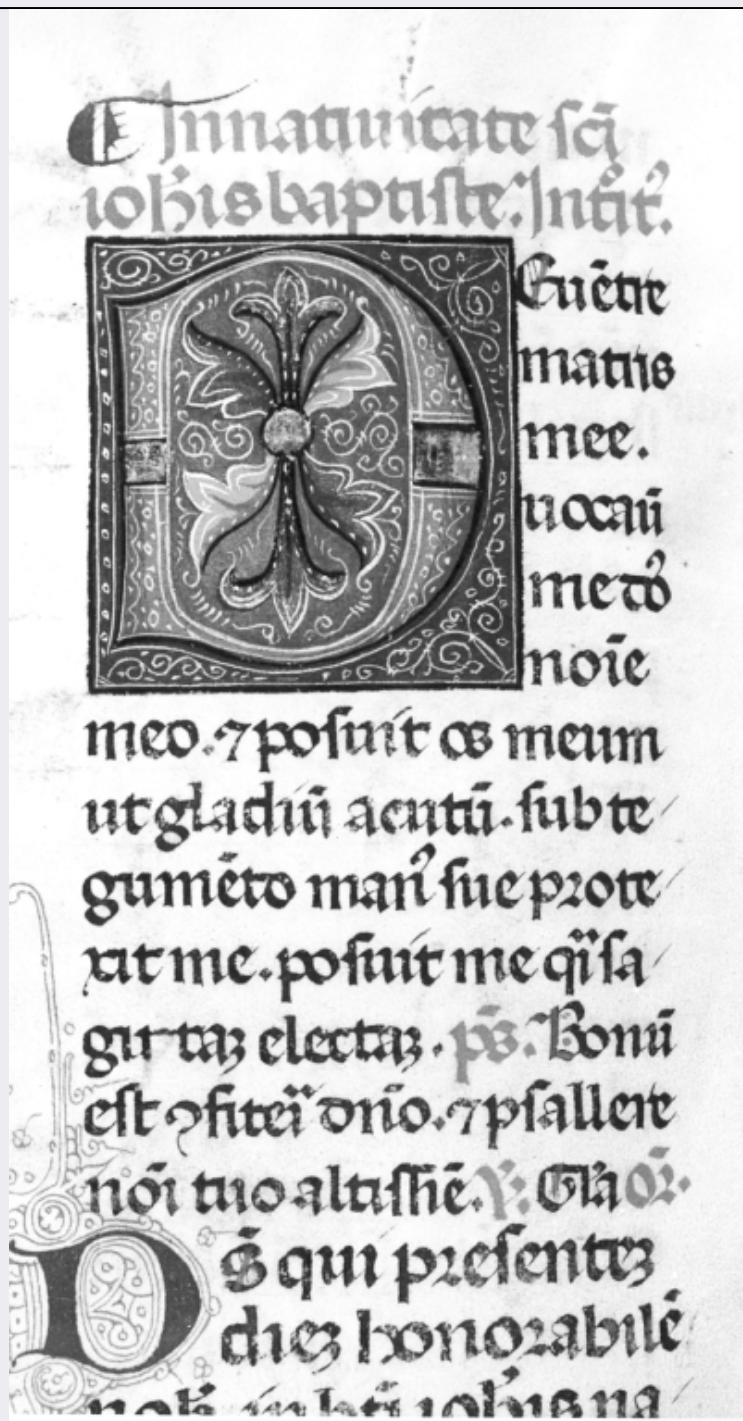 In natiuitate sc̄i
ioh̄is baptiste. Int̄it᷒.
DE uētre
matris
mee.
uocauı̄
me dn̄s
noı̄e
meo. ⁊ posuit os meum
ut gladiū acutū. sub te
gumēto man᷒ sue prote
xit me. posuit me q̄i sa
gittaꝫ electaꝫ. pṡ. Bonū
est ꝯfiteri dn̄o. ⁊ psallere
noı̄ tuo altissı̄e. ℣. Gl̄a or̄.
Ds̄ qui presenteꝫ
dieꝫ honorabilē
nob̄ in bt̄i ioh̄is na